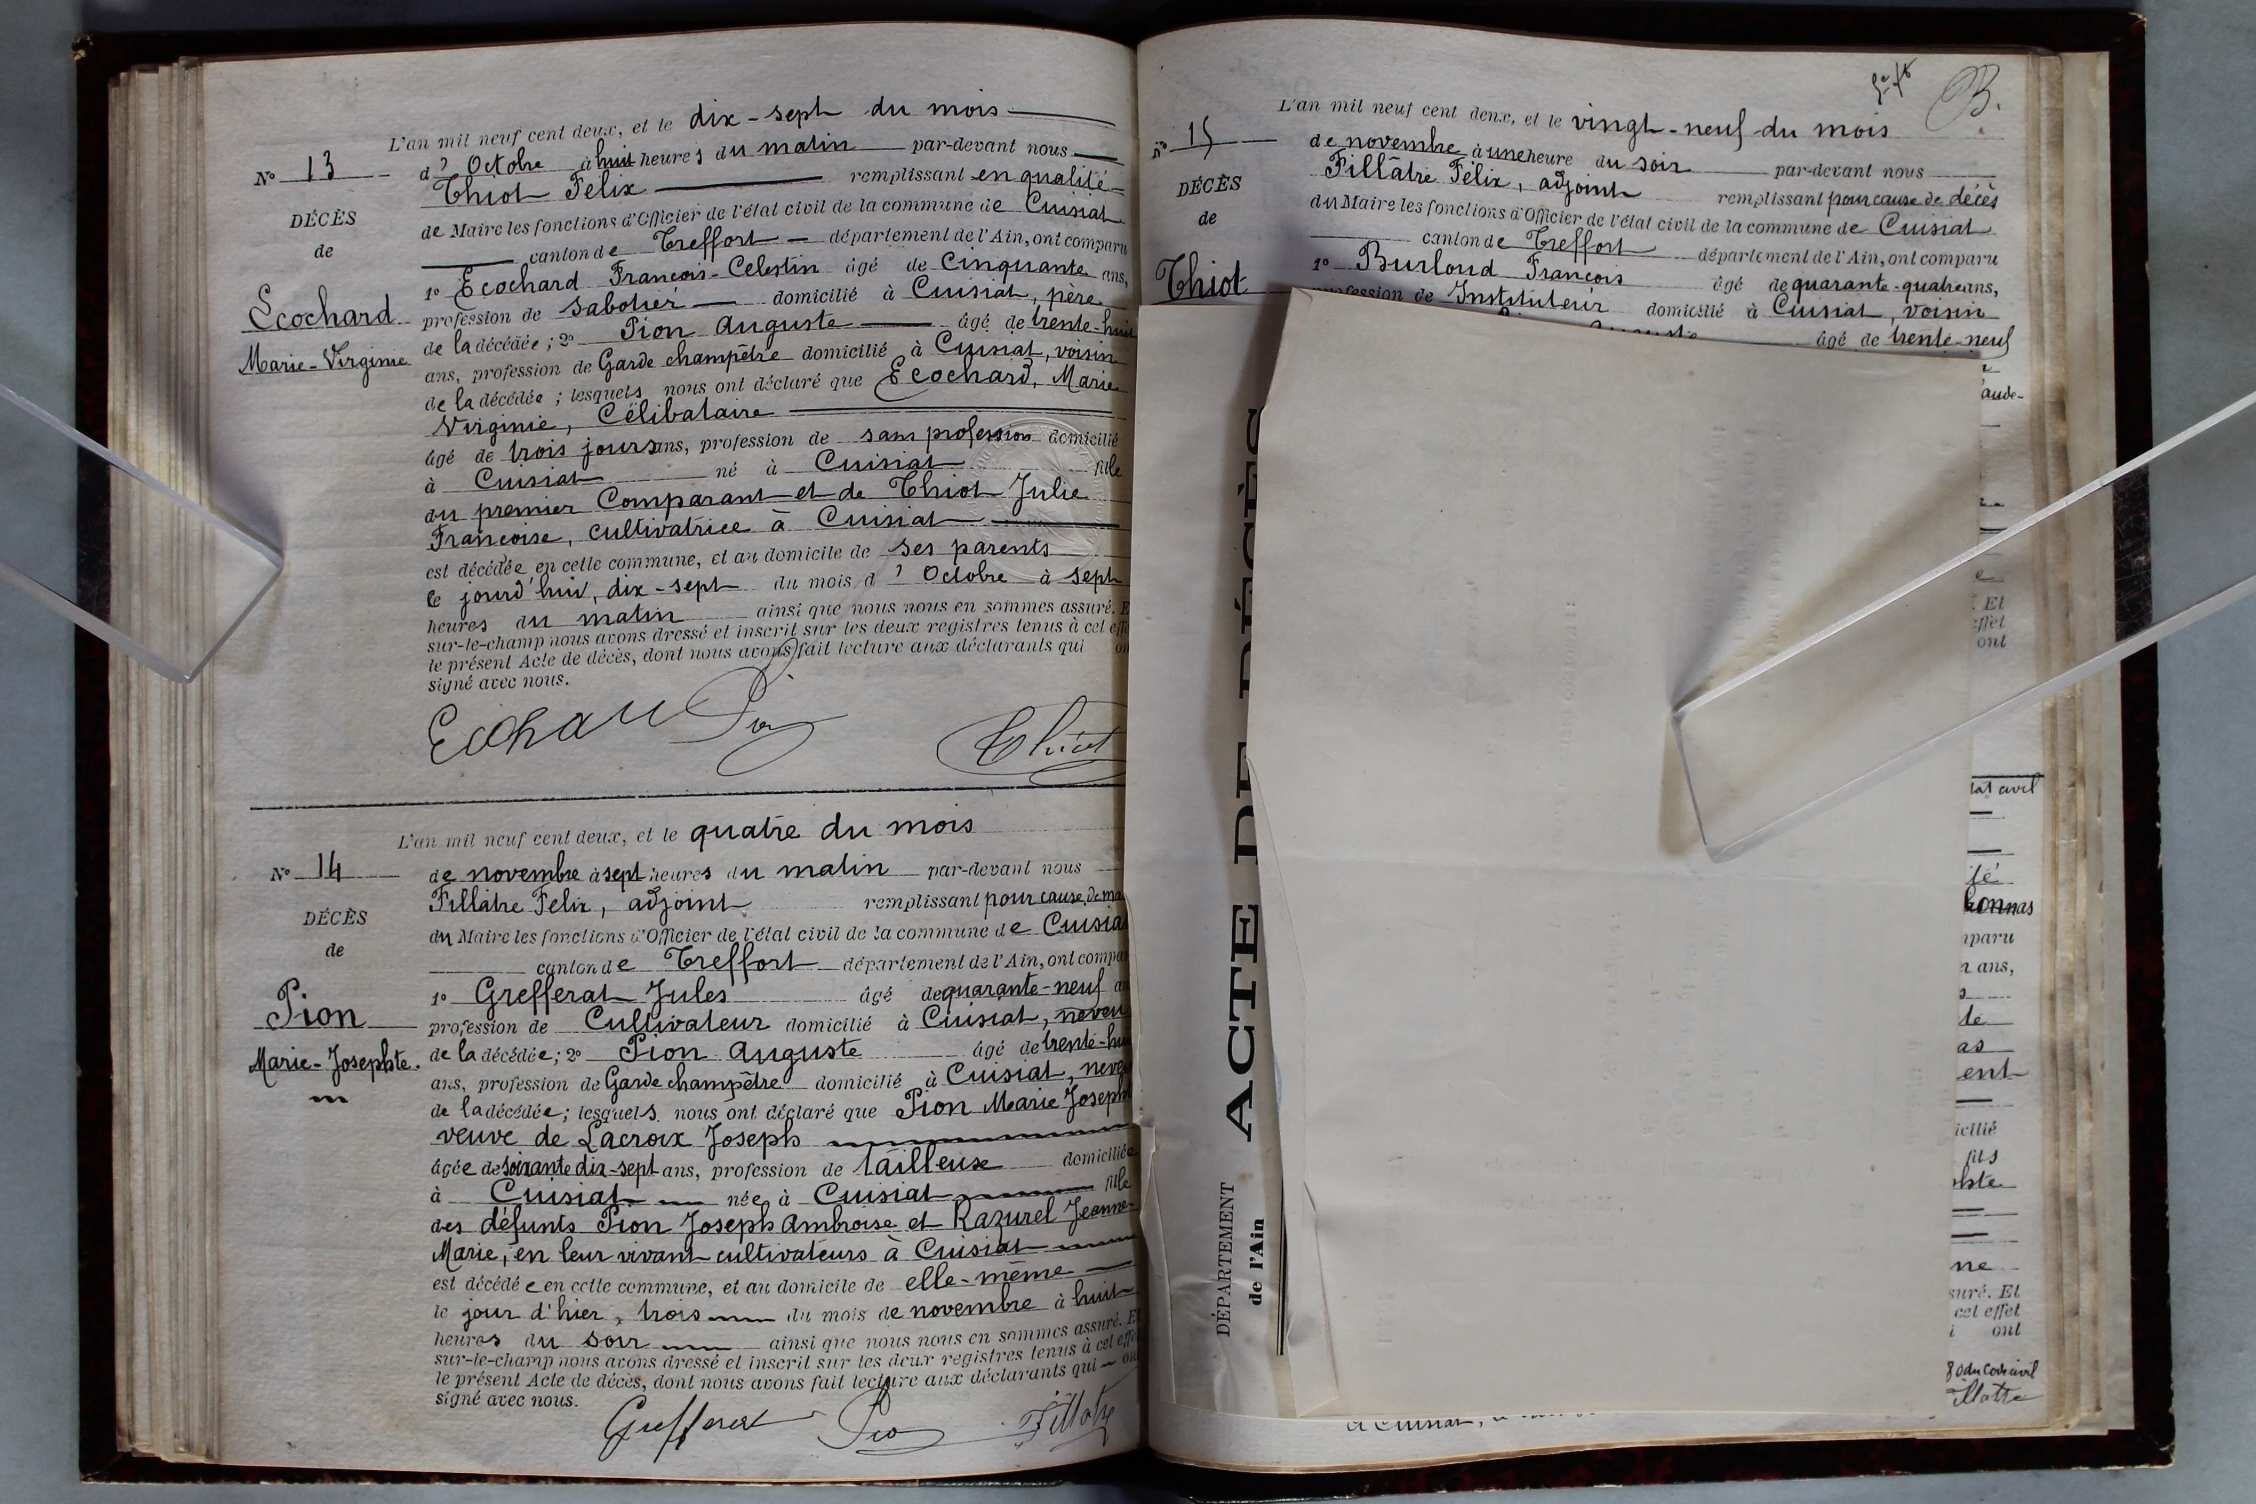 N° 13
DÉCÈS
de
Ecochard
Marie-Virginie
L'an mil neuf cent deux, et le dix-sept du mois
d'Octobre à huit heures du matin par-devant nous
Thiot Félix remplissant en qualité
de Maire les fonctions d'Officier de l'état civil de la commune de Cuisiat
canton de Treffort département de l'Ain, ont comparu
1° Ecochard François-Celestin âgé de Cinquante ans,
profession de Sabotier domicilié à Cuisiat, père
de la décédée; 2° Pion Auguste âgé de trente-huit
ans, profession de Garde champêtre domicilié à Cuisiat, voisin
de la décédée; lesquels nous ont déclaré que Ecochard, Marie
Virginie, Célibataire
âgé de trois jours ans, profession de sans profession domicilié
à Cuisiat né à Cuisiat fille
du premier Comparant et de Thiot Julie
Françoise, cultivatrice à Cuisiat
est décédée en cette commune, et au domicile de ses parents
le jourd'hui, dix-sept du mois d'Octobre à sept
heures du matin ainsi que nous nous en sommes assuré. E
sur-le-champ nous avons dressé et inscrit sur les deux registres tenus à cet effe
le présent Acte de décès, dont nous avons fait lecture aux déclarants qui on
signé avec nous.
Pion Thiot
N° 14
DÉCÈS
de
Pion
Marie-Josephte.
L'an mil neuf cent deux, et le quatre du mois
de novembre à sept heures du matin par-devant nous
Fillâtre Felix, adjoint remplissant pour cause de ma
du Maire les fonctions d'Officier de l'état civil de la commune de Cuisia
canton de Treffort département de l'Ain, ont compa
1° Grefferat Jules âgé de quarante-neuf a
profession de Cultivateur domicilié à Cuisiat, neveu
de la décédée; 2° Pion Auguste âgé de trente-hu
ans, profession de Garde champêtre domicilié à Cuisiat, neve
de la décédée; lesquels nous ont déclaré que Pion Marie Joseph
veuve de Lacroix Joseph
âgée de soixante dix-sept ans, profession de tailleuse domiciliée
à Cuisiat née à Cuisiat fille
des défunts Pion Joseph Ambroise et Razurel Jeanne-
Marie, en leur vivant cultivateurs à Cuisiat
est décédée en cette commune, et au domicile de elle-même
le jour d'hier, trois du mois de novembre à huit
heures du soir ainsi que nous nous en sommes assuré. E
sur-le-champ nous avons dressé et inscrit sur les deux registres tenus à cet effe
le présent Acte de décès, dont nous avons fait lecture aux déclarants qui on
signé avec nous.
Grefferat Pion Fillatre
B.
N° 15
DÉCÈS
de
Thiot
L'an mil neuf cent deux, et le vingt-neuf du mois
de novembre à une heure du soir par-devant nous
Fillâtre Félix, adjoint remplissant pour cause de décès
du Maire les fonctions d'Officier de l'état civil de la commune de Cuisiat
canton de Treffort département de l'Ain, ont comparu
1° Burloud François âgé de quarante-quatre ans,
profession de Instituteur domicilié à Cuisiat, voisin
âgé de trente-neuf
aude-
. Et
effet
ont
ACTE DE DÉCÈS
DÉPARTEMENT
de l'Ain
tat civil
té
onnas
mparu
ans,
te
as
ent
icilié
fils
phte
ne
suré. Et
cet effet
i ont
80 du Code civil
illatre
à Cuisiat,